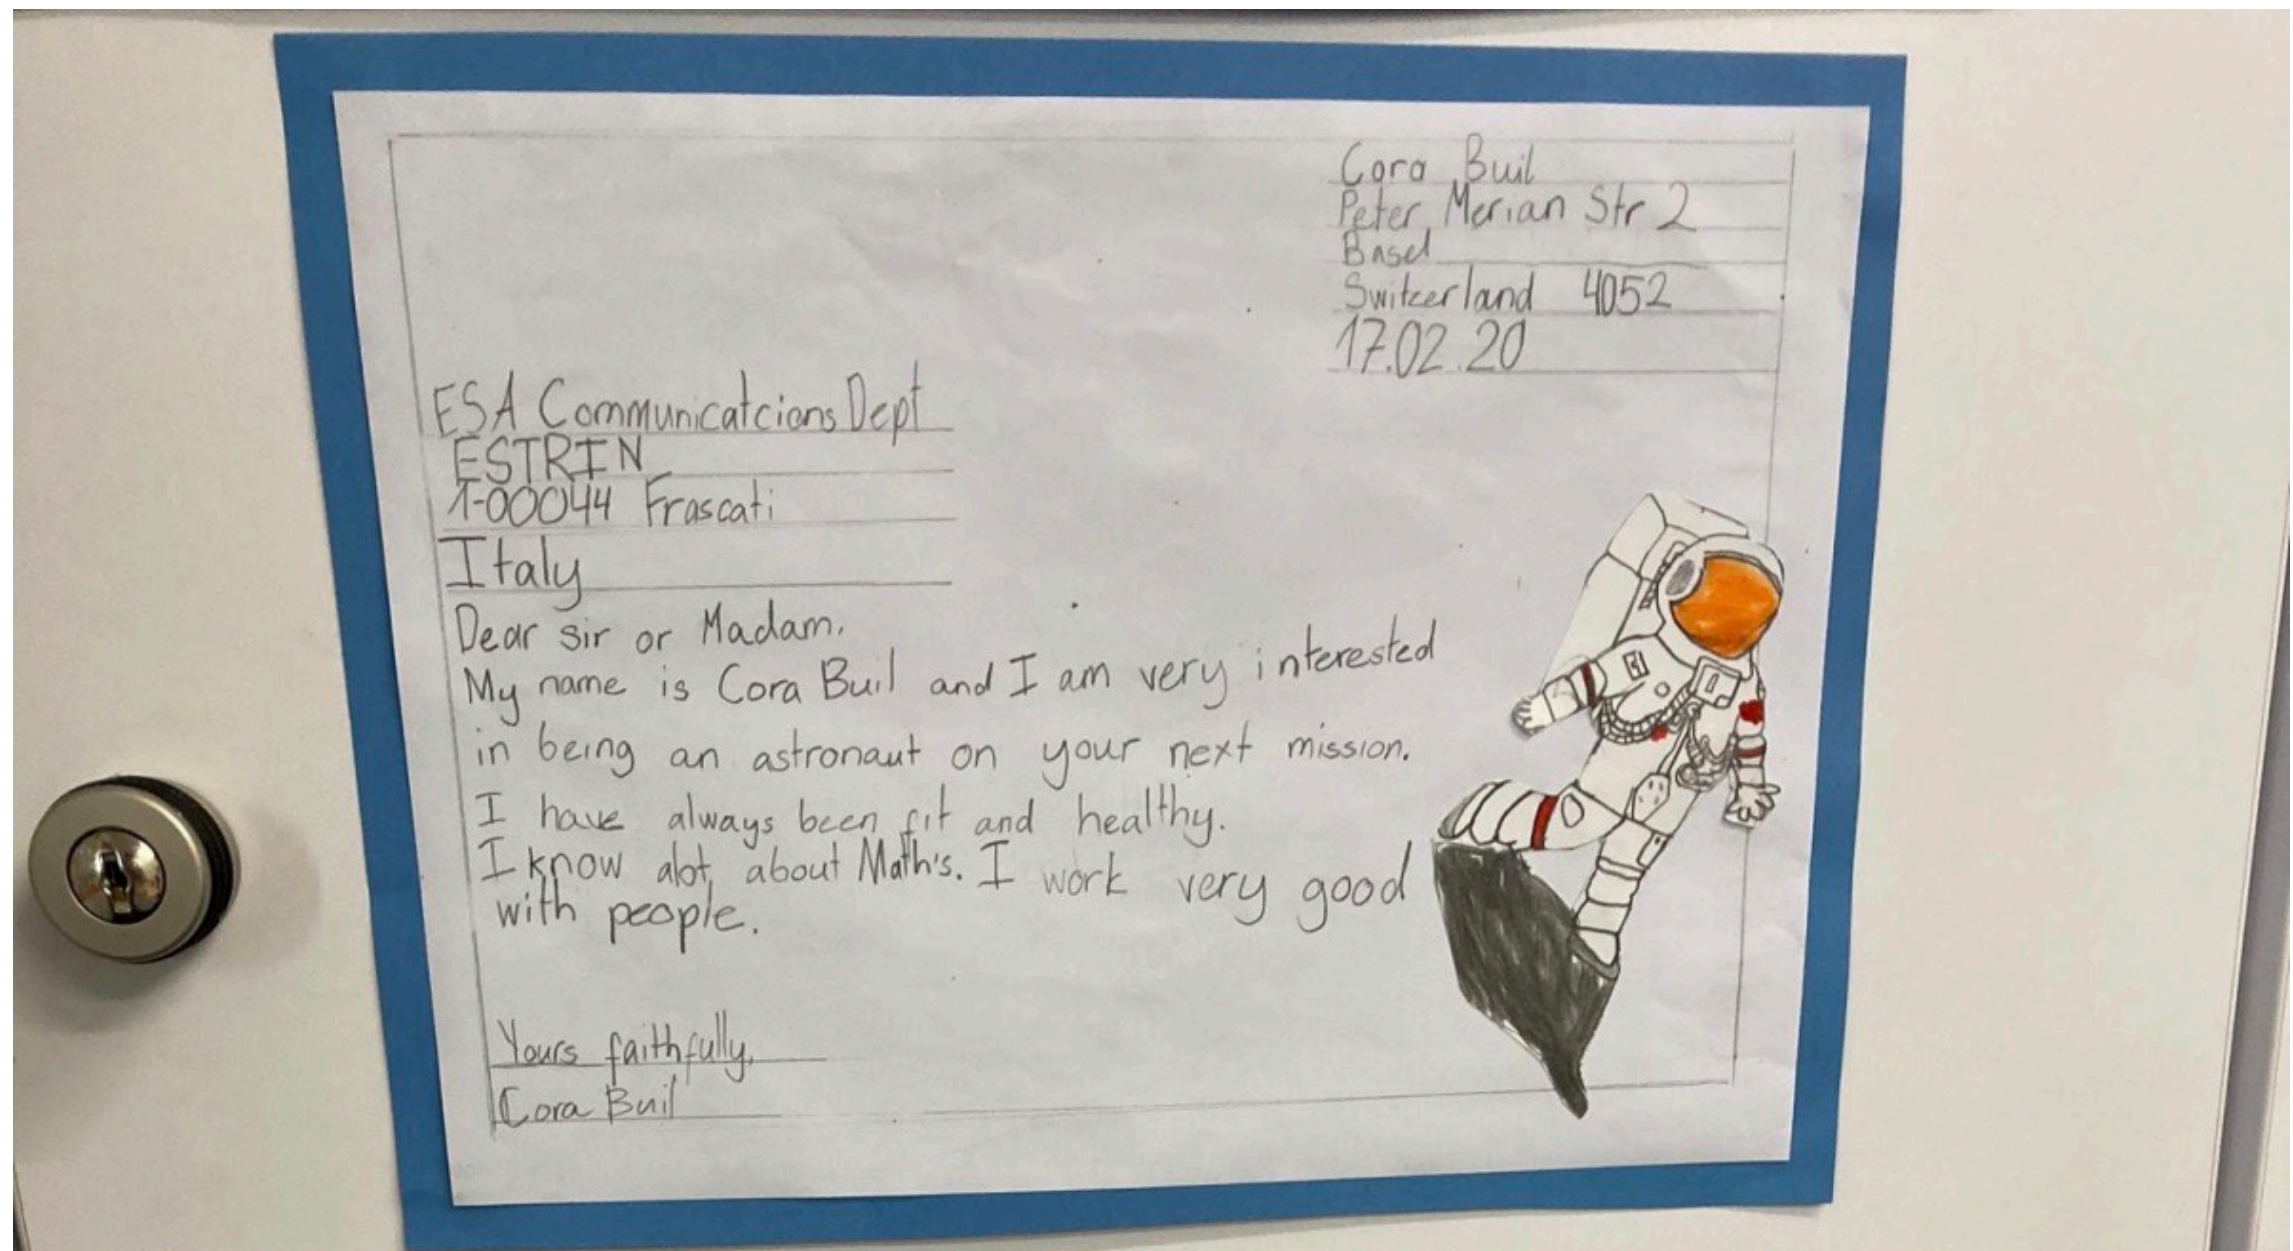 Cora Buil
Peter Merian Str 2
Basel
Switzerland 4052
17.02.20
ESA Communicatcions Dept
ESTRIN
1-00044 Frascati
Italy
Dear sir or Madam.
My name is Cora Buil and I am very interested
in being an astronaut on your next mission.
I have always been fit and healthy.
I know alot about Math's. I work very good
with people.
Yours faithfully,
Cora Buil